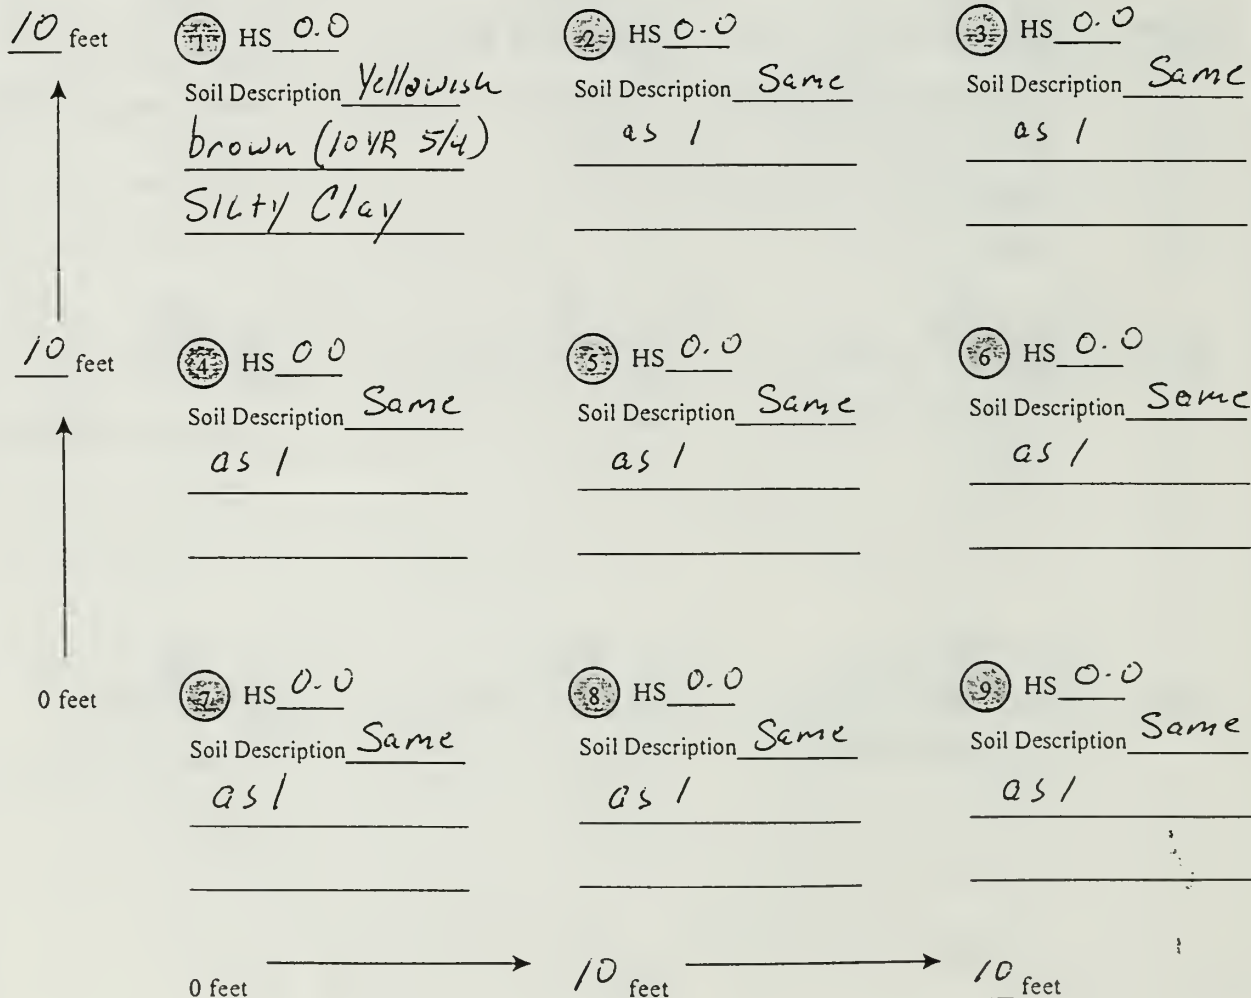 10 feet
1 HS 0.0
Soil Description Yellowish
brown (10YR 5/4)
Silty Clay
2 HS 0.0
Soil Description Same
as 1
3 HS 0.0
Soil Description Same
as 1
10 feet
4 HS 0 0
Soil Description Same
as 1
5 HS 0.0
Soil Description Same
as 1
6 HS 0.0
Soil Description Same
as 1
0 feet
7 HS 0.0
Soil Description Same
as 1
8 HS 0.0
Soil Description Same
as 1
9 HS 0.0
Soil Description Same
as 1
0 feet
10 feet
10 feet